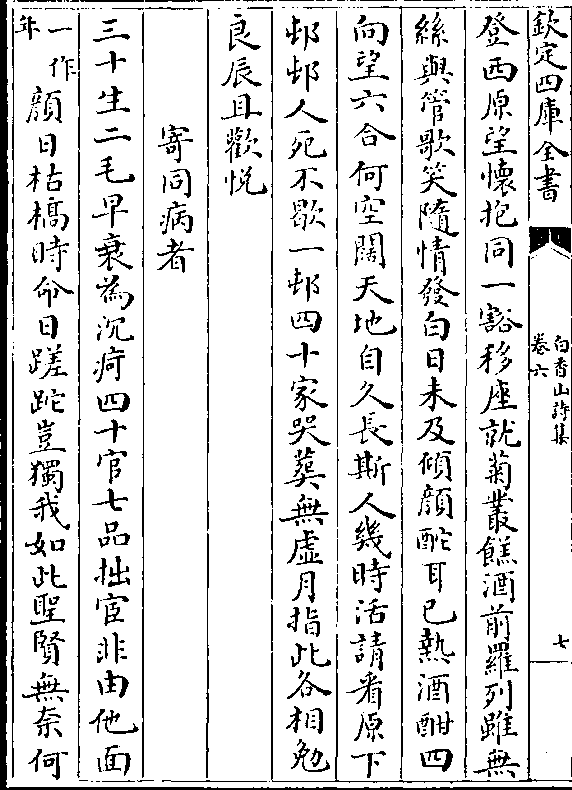 欽定四庫全書
白香山詩集
卷六
七
登西原望懷抱同一豁移座就菊叢餻酒前羅列雖無
絲與管歌笑隨情發白日未及傾顏酡耳已熱酒酣四
向望六合何空闊天地自久長斯人幾時活請看原下
邨邨人死不歇一邨四十家哭葬無虚月指此各相勉
良辰且歡悅
寄同病者
三十生二毛早衰為沉痾四十官七品拙宦非由他面
一作
年
顏日枯槁時命日蹉跎豈獨我如此聖賢無奈何